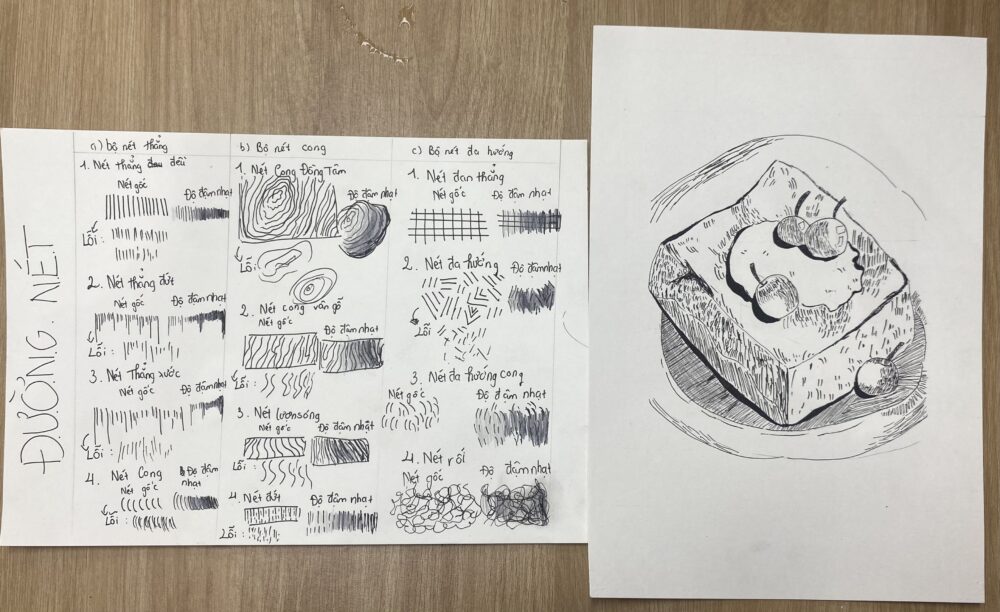 ĐƯỜNG. NÉT
a) bộ nét thẳng
1. Nét thẳng đều
Nét gốc Độ đậm nhạt
Lỗi:
2. Nét thẳng đứt
Nét gốc Độ đậm nhạt
Lỗi:
3. Nét Thẳng xước
Nét gốc Độ đậm nhạt
Lỗi:
4. Nét Cong
Nét gốc Độ đậm nhạt
Lỗi:
b) Bộ nét cong
1. Nét Cong Đồng Tâm
Độ đậm nhạt
Lỗi:
2. Nét cong vân gỗ
Nét gốc Độ đậm nhạt
Lỗi:
3. Nét lượn sóng
Nét gốc Độ đậm nhạt
Lỗi:
4. Nét đứt Độ đậm nhạt
Lỗi:
c) Bộ nét đa hướng
1. Nét đan thẳng
Nét gốc Độ đậm nhạt
2. Nét đa hướng
Độ đậm nhạt
Lỗi
3. Nét đa hướng cong
Nét gốc Độ đậm nhạt
4. Nét rối
Nét gốc Độ đậm nhạt